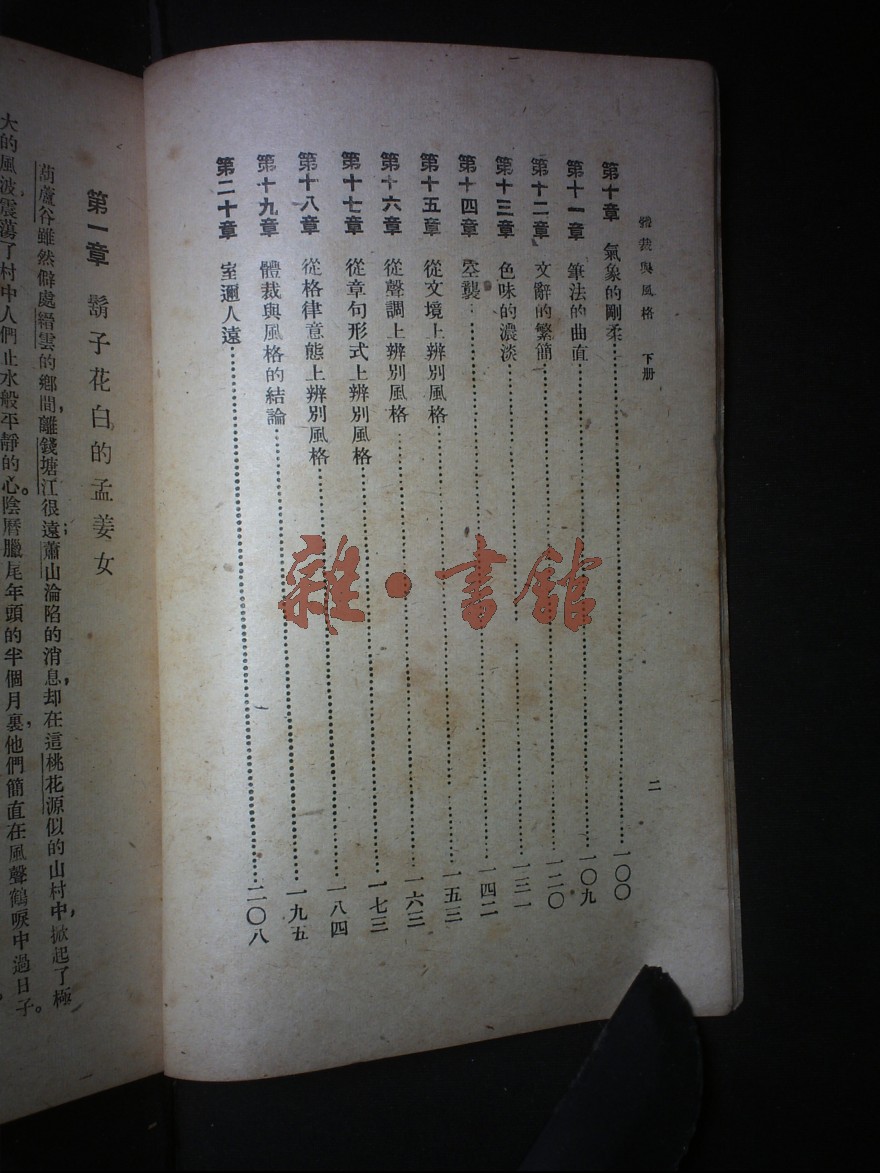 體裁與風格 下册
二
第十章 氣象的剛柔 一〇〇
第十一章 筆法的曲直 一〇九
第十二章 文辭的繁簡 一二〇
第十三章 色味的濃淡 一三一
第十四章 空襲 一四二
第十五章 從文境上辨別風格 一五三
第十六章 從聲調上辨別風格 一六三
第十七章 從章句形式上辨別風格 一七三
第十八章 從格律意態上辨別風格 一八四
第十九章 體裁與風格的結論 一九五
第二十章 室邇人遠 二〇八
第一章 鬍子花白的孟姜女
葫蘆谷雖然僻處縉雲的鄉間，離錢塘江很遠；蕭山淪陷的消息，却在這桃花源似的山村中，掀起了極
大的風波，震蕩了村中人們止水般平靜的心。陰曆臘尾年頭的半個月裏，他們簡直在風聲鶴唳中過日子。
雜·書館